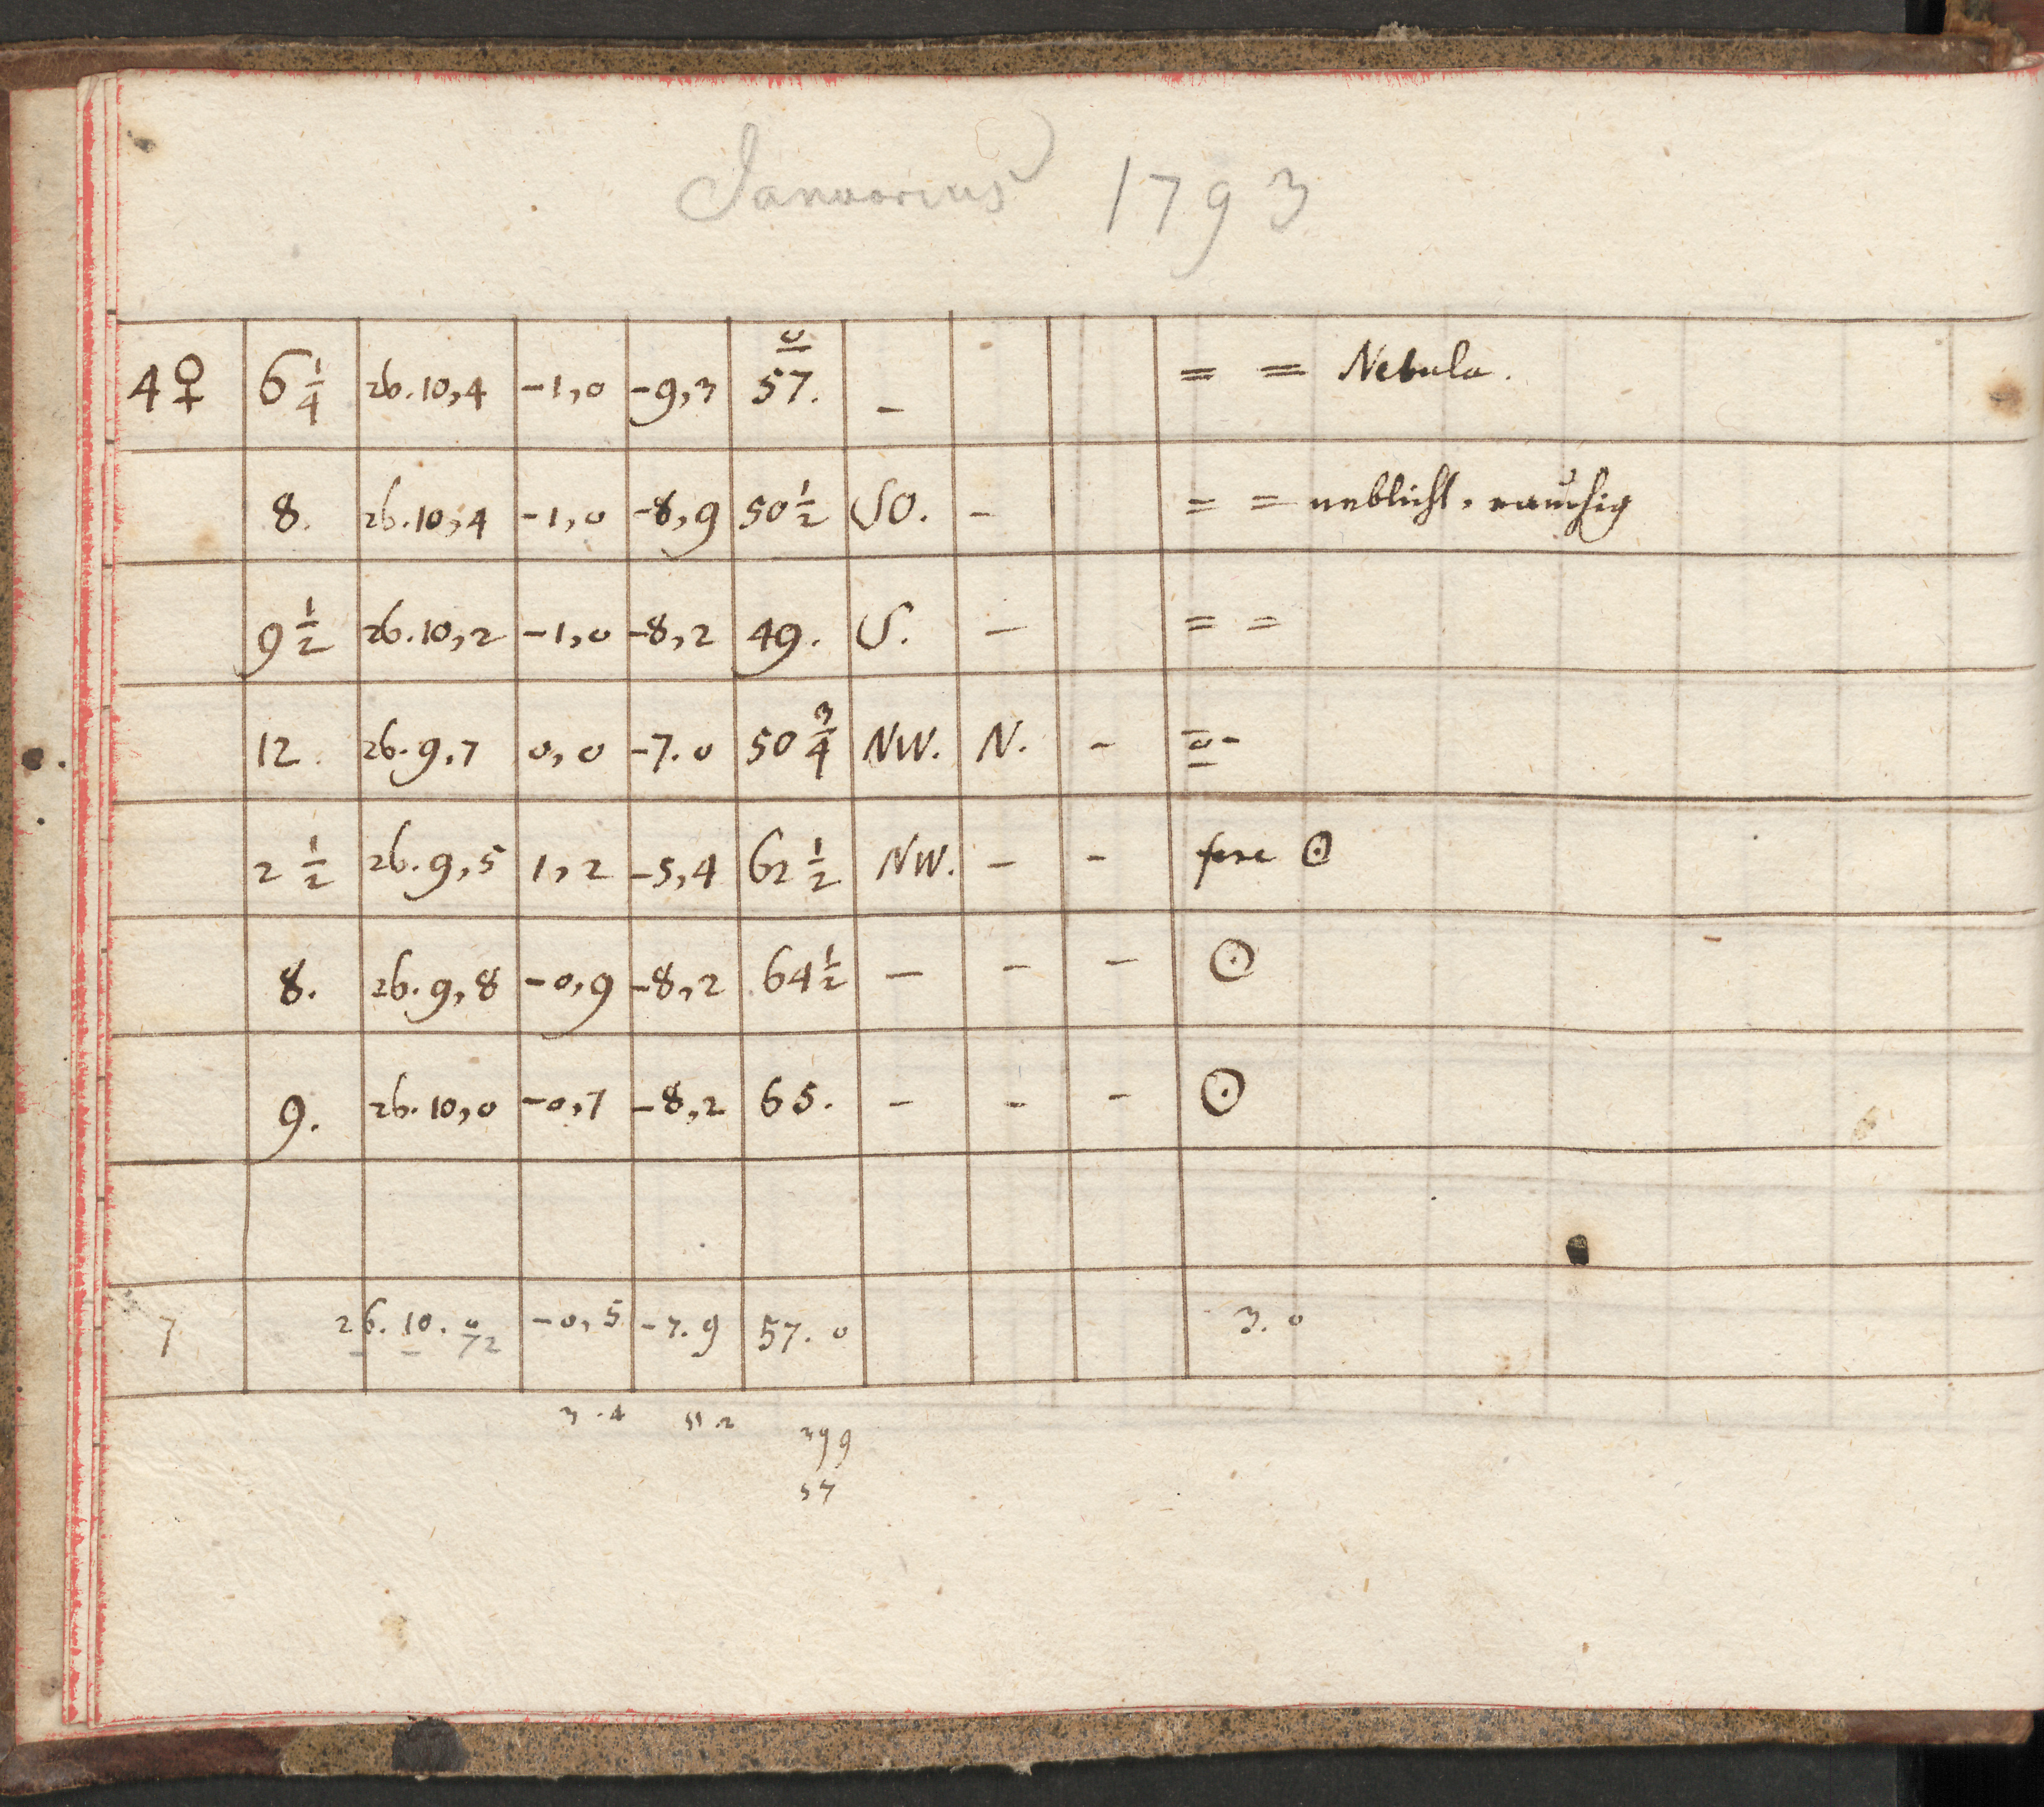 Januarius 1793
4 ♀ 6 1/4 26. 10,4 -1,0 -9,3 0 57. - = = Nebula.
8. 26. 10,4 -1,0 -8,9 50 1/2 SO. - = = neblicht, rauchig
9 1/2 26. 10,2 -1,0 -8,2 49. S. - = =
12. 26. 9,7 0,0 -7.0 50 3/4 NW. N. - =0= -
2 1/2 26. 9,5 1,2 -5,4 62 1/2 NW. - - fere ☉
8. 26. 9,8 -0,9 -8,2 64 1/2 - - - ☉
9. 26. 10,0 -0,7 -8,2 65. - - - ☉
7 26. 10. 0 72 -0,5 -7.9 57. 0 3. 0
3.4 55.2
399
57